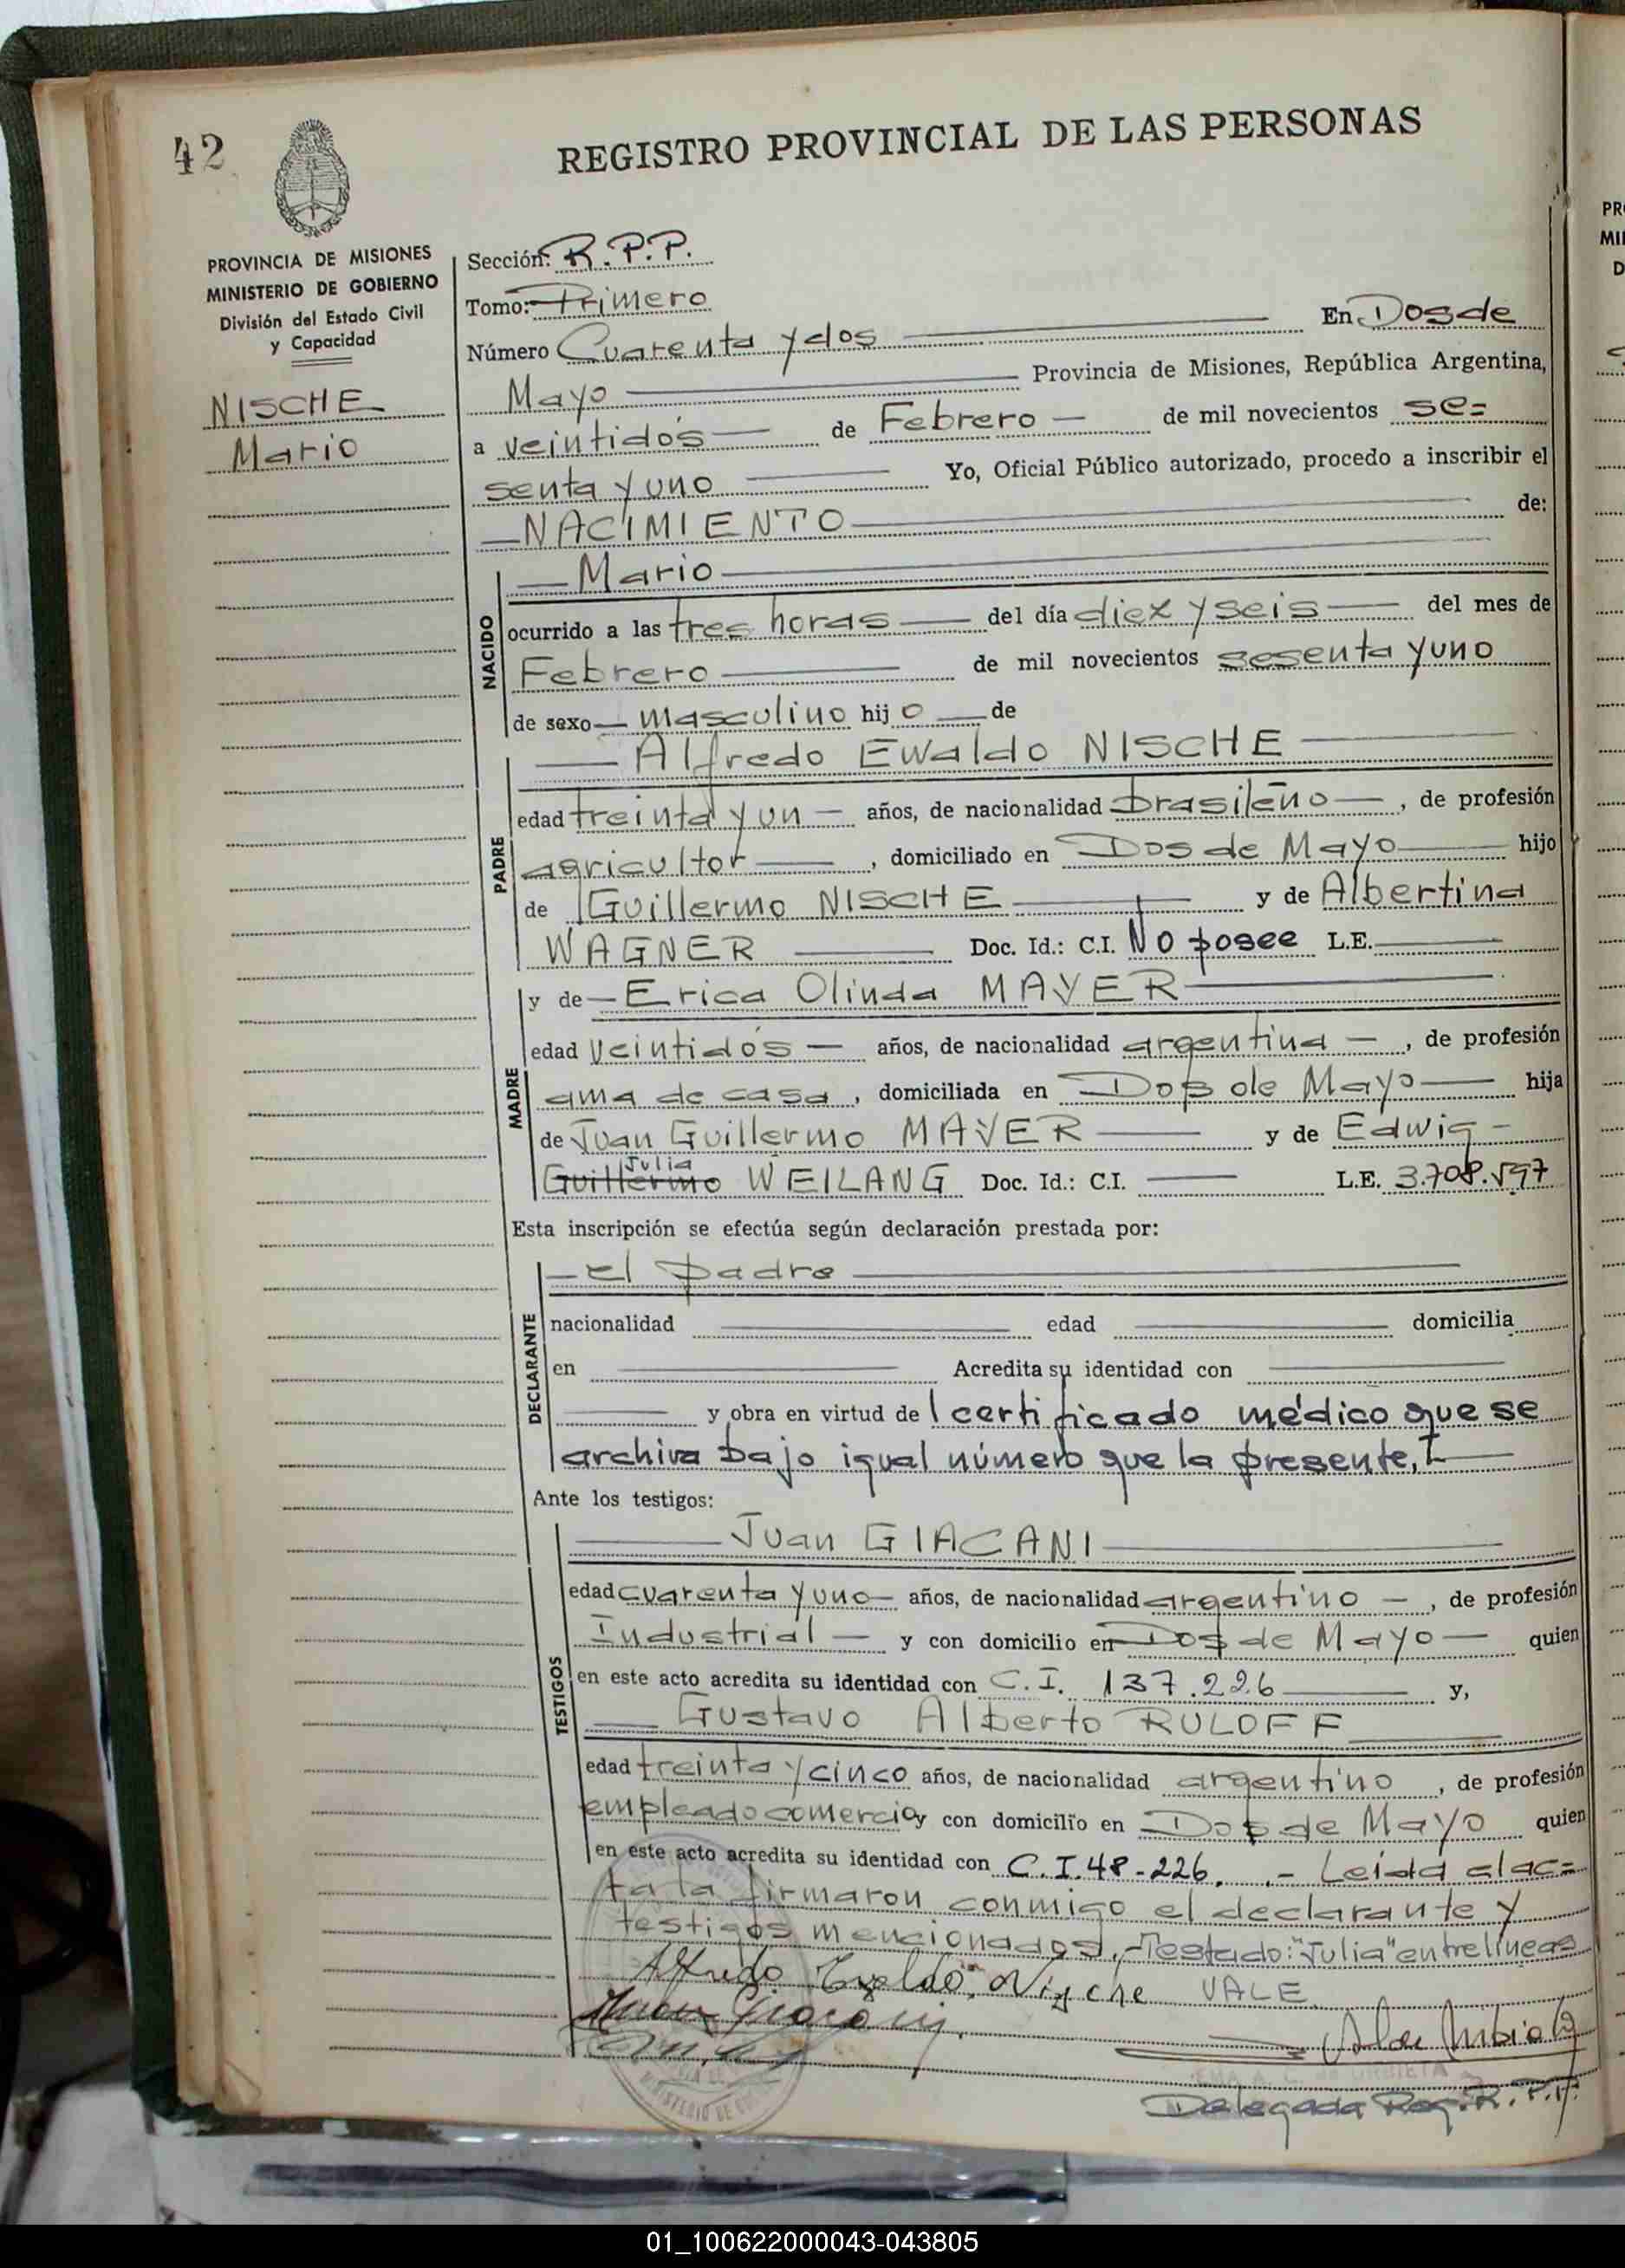 42
REGISTRO PROVINCIAL DE LAS PERSONAS
PROVINCIA DE MISIONES
MINISTERIO DE GOBIERNO
División del Estado Civil
y Capacidad
NISCHE
Mario
Sección: R.P.P.
Tomo: Primero
Número Cuarenta y dos En Dos de
Mayo Provincia de Misiones, República Argentina,
a veintidós de Febrero de mil novecientos se=
senta y uno Yo, Oficial Público autorizado, procedo a inscribir el
NACIMIENTO de:
NACIDO
Mario
ocurrido a las tres horas del día diex y seis del mes de
Febrero de mil novecientos sesenta y uno
de sexo masculino hijo de
PADRE
Alfredo Ewaldo NISCHE
edad treinta y un años, de nacionalidad brasileño, de profesión
agricultor, domiciliado en Dos de Mayo hijo
de Guillermo NISCHE y de Albertina
WAGNER Doc. Id.: C.I. No posee L.E.
MADRE
y de Erica Olinda MAYER
edad veintidós años, de nacionalidad argentina, de profesión
ama de casa, domiciliada en Dos de Mayo hija
de Juan Guillermo MAYER y de Edwig
Julia
Guillermo WEILANG Doc. Id.: C.I. L.E. 3.708.597
Esta inscripción se efectúa según declaración prestada por:
DECLARANTE
el padre
nacionalidad edad domicilia
en Acredita su identidad con
y obra en virtud del certificado médico que se
archiva bajo igual número que la presente,
Ante los testigos:
TESTIGOS
Juan GIACANI
edad cuarenta y uno años, de nacionalidad argentino, de profesión
Industrial y con domicilio en Dos de Mayo quien
en este acto acredita su identidad con C.I. 137.226 y,
Gustavo Alberto RULOFF
edad treinta y cinco años, de nacionalidad argentino, de profesión
empleado comercio y con domicilio en Dos de Mayo quien
en este acto acredita su identidad con C.I. 48-226. .- Leída el ac=
ta la firmaron conmigo el declarante y
testigos mencionados,-Testado: "Julia" entrelíneas
Alfredo Nische VALE
Delegada Reg. R.P.P.
01_100622000043-043805